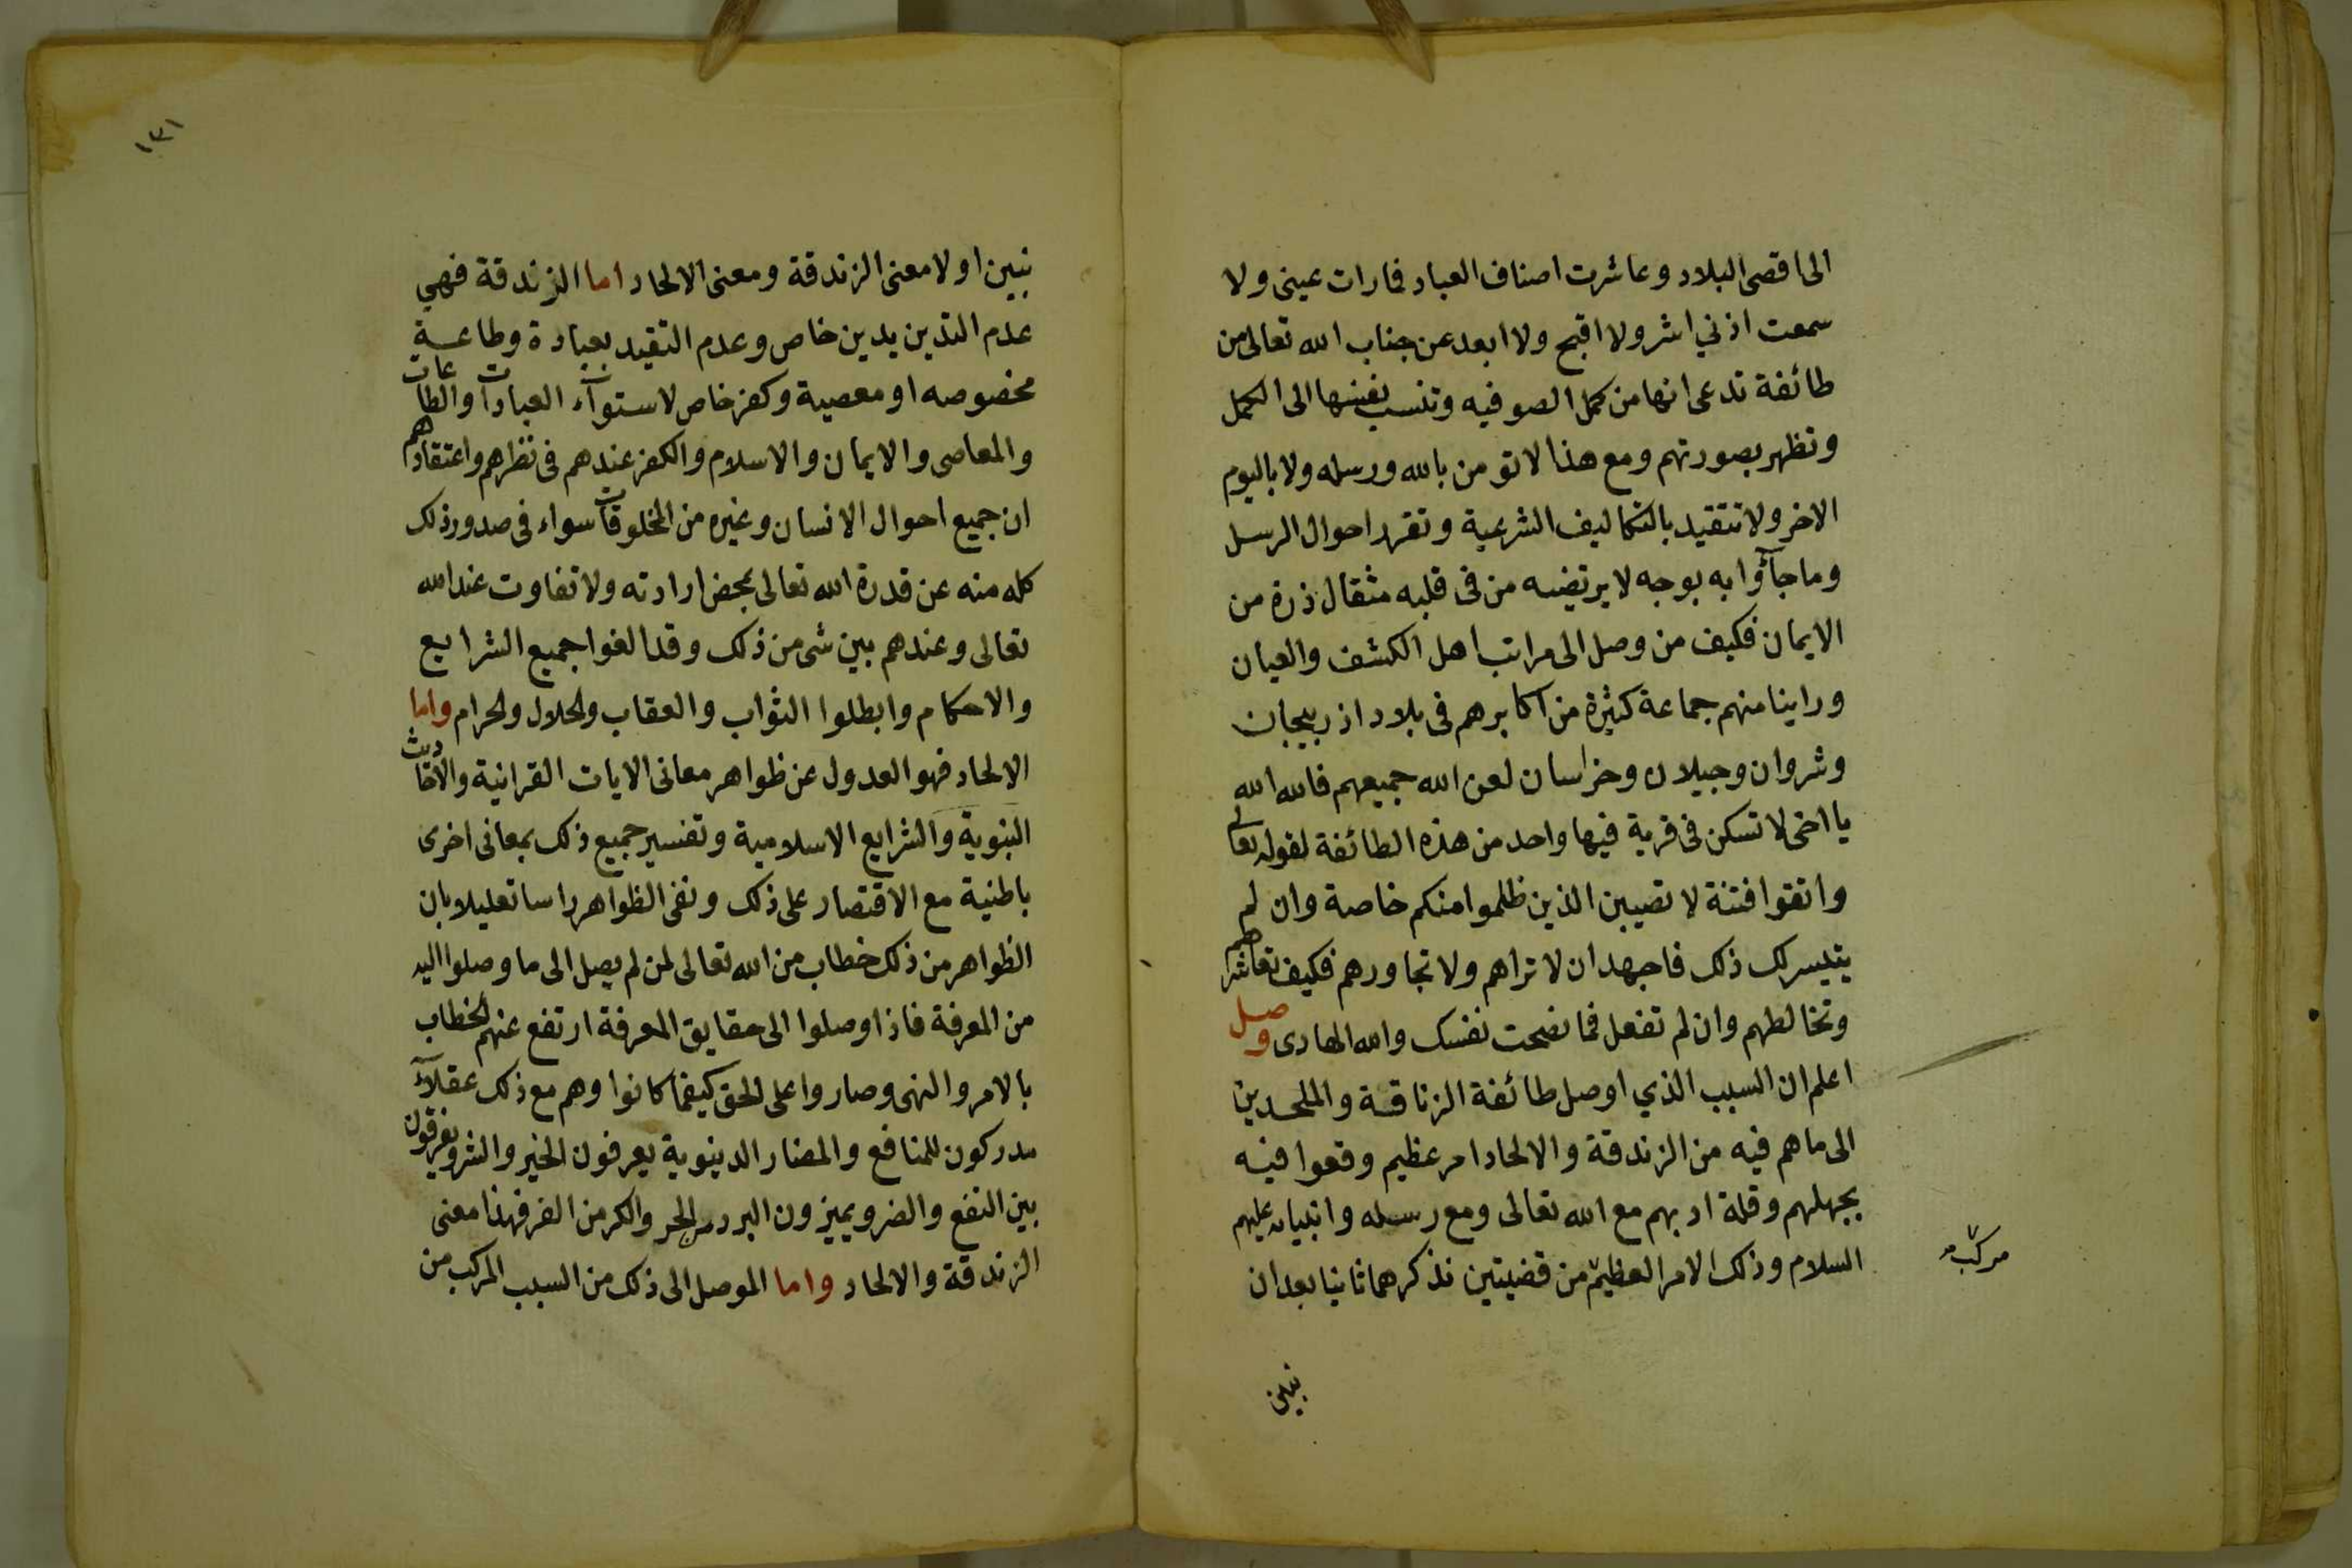 الى اقصى البلاد وعاشرت اصناف العباد فما رات عيني ولا
سمعت اذني اشر ولا اقبح ولا ابعد عن جناب الله تعالى من
طائفة تدعى انها من كمل الصوفيه وتنسب نفسها الى الكمل
وتظهر بصورتهم ومع هذا لا تومن بالله ورسله ولا باليوم
الاخر ولا تتقيد بالتكاليف الشرعية وتقرر احوال الرسل
وما جآؤا به بوجه لا يرتضيه من فى قلبه مثقال ذرة من
الايمان فكيف من وصل الى مراتب اهل الكشف والعيان
وراينا منهم جماعة كثيرة من اكابرهم فى بلاد اذربيجان
وشروان وجيلان وخراسان لعن الله جميعهم فالله الله
يا اخى لا تسكن فى قرية فيها واحد من هذه الطائفة لقوله تعالى
واتقوا فتنة لا تصيبن الذين ظلموا منكم خاصة وان لم
يتيسر لك ذلك فاجهد ان لا تراهم ولا تجاورهم فكيف تعاشرهم
وتخالطهم وان لم تفعل فما نصحت نفسك والله الهادى وصل
اعلم ان السبب الذي اوصل طائفة الزناقة والملحدين
الى ما هم فيه من الزندقة والالحاد امر عظيم وقعوا فيه
بجهلهم وقلة ادبهم مع الله تعالى ومع رسله وانبيائه عليهم
السلام وذلك الامر العظيم من قضيتين نذكرهما ثانيا بعد ان
مركب
نبين
١٣١
نبين اولا معنى الزندقة ومعنى الالحاد اما الزندقة فهي
عدم التدين بدين خاص وعدم التقيد بعبادة وطاعة
مخصوصه او معصية وكفر خاص لاستوآء العبادات والطاعات
والمعاصى والايمان والاسلام والكفر عندهم فى نظرهم واعتقادهم
ان جميع احوال الانسان وغيره من المخلوقات سواء فى صدور ذلك
كله منه عن قدرة الله تعالى بمحض ارادته ولا تفاوت عند الله
تعالى وعندهم بين شى من ذلك وقد الغوا جميع الشرايع
والاحكام وابطلوا الثواب والعقاب والحلال والحرام واما
الالحاد فهو العدول عن ظواهر معانى الايات القرانية والاحاديث
النبوية والشرايع الاسلامية وتفسير جميع ذلك بمعانى اخرى
باطنية مع الاقتصار على ذلك ونفى الظواهر راسا تعليلا بان
الظواهر من ذلك خطاب من الله تعالى لمن لم يصل الى ما وصلوا اليه
من المعرفة فاذا وصلوا الى حقايق المعرفة ارتفع عنهم الخطاب
بالامر والنهى وصاروا على الحق كيفما كانوا وهم مع ذلك عقلآء
مدركون للمنافع والمضار الدينوية يعرفون الخير والشر ويفرقون
بين النفع والضر ويميزون البرد من الحر والكر من الفر فهذا معنى
الزندقة والالحاد واما الموصل الى ذلك من السبب المركب من